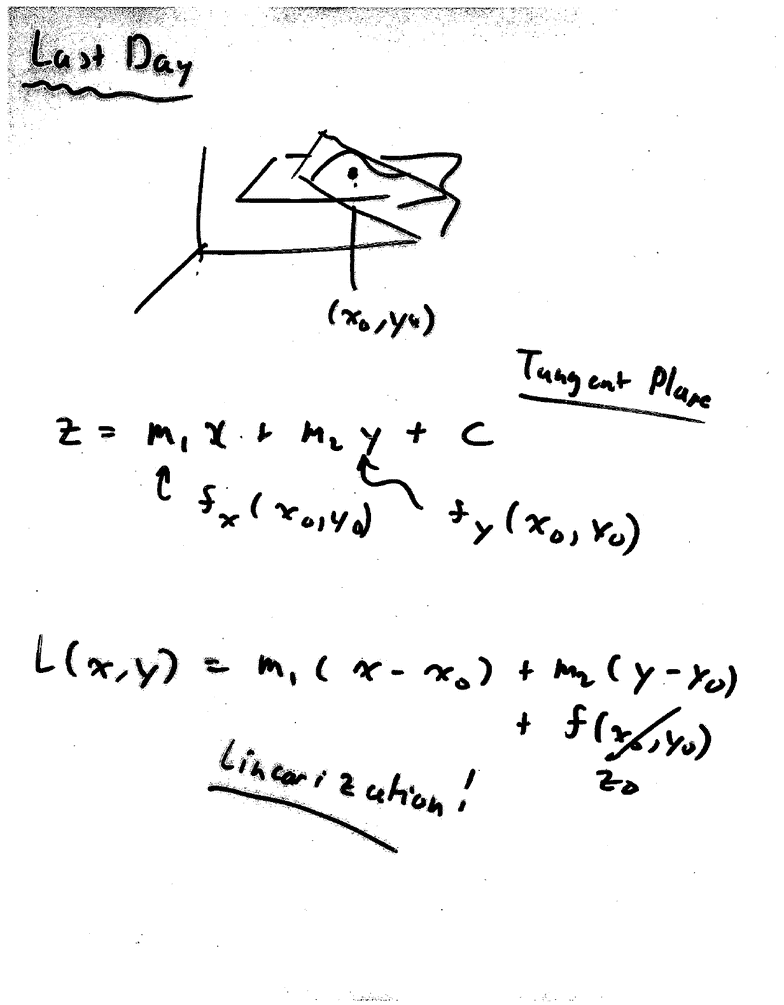 Last Day
(x₀, y₀)
Tangent Plane
z = m₁ x + m₂ y + c
fₓ(x₀, y₀) f_y(x₀, y₀)
L(x, y) = m₁ (x - x₀) + m₂ (y - y₀)
+ f(x₀, y₀)
z₀
Linearization!